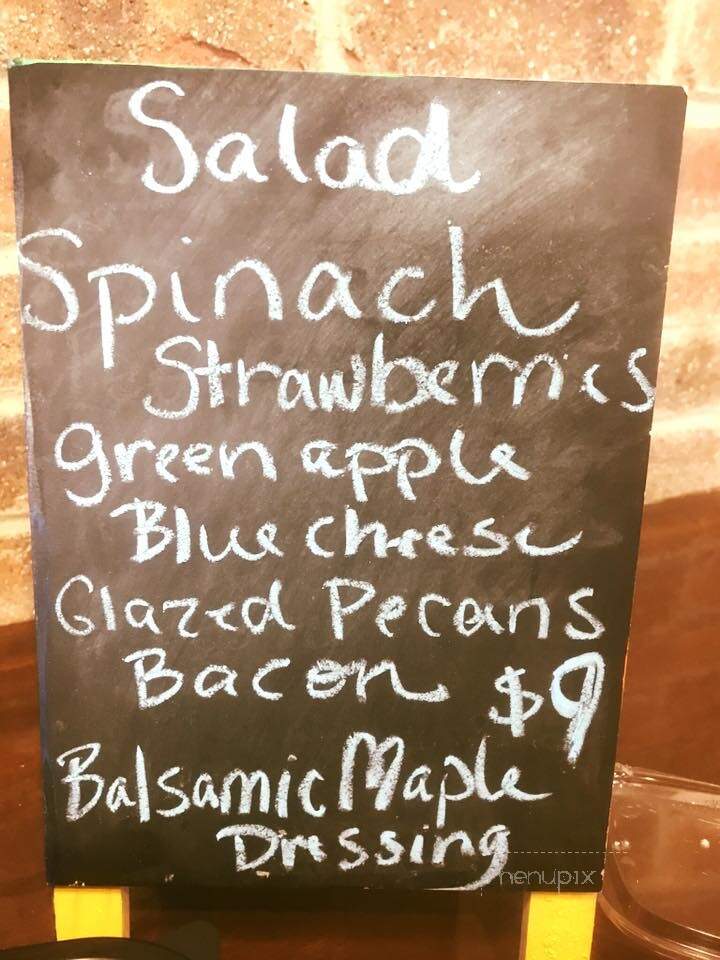 Salad
Spinach
Strawberries
green apple
Blue cheese
Glazed Pecans
Bacon $9
Balsamic Maple
Dressing
menupix